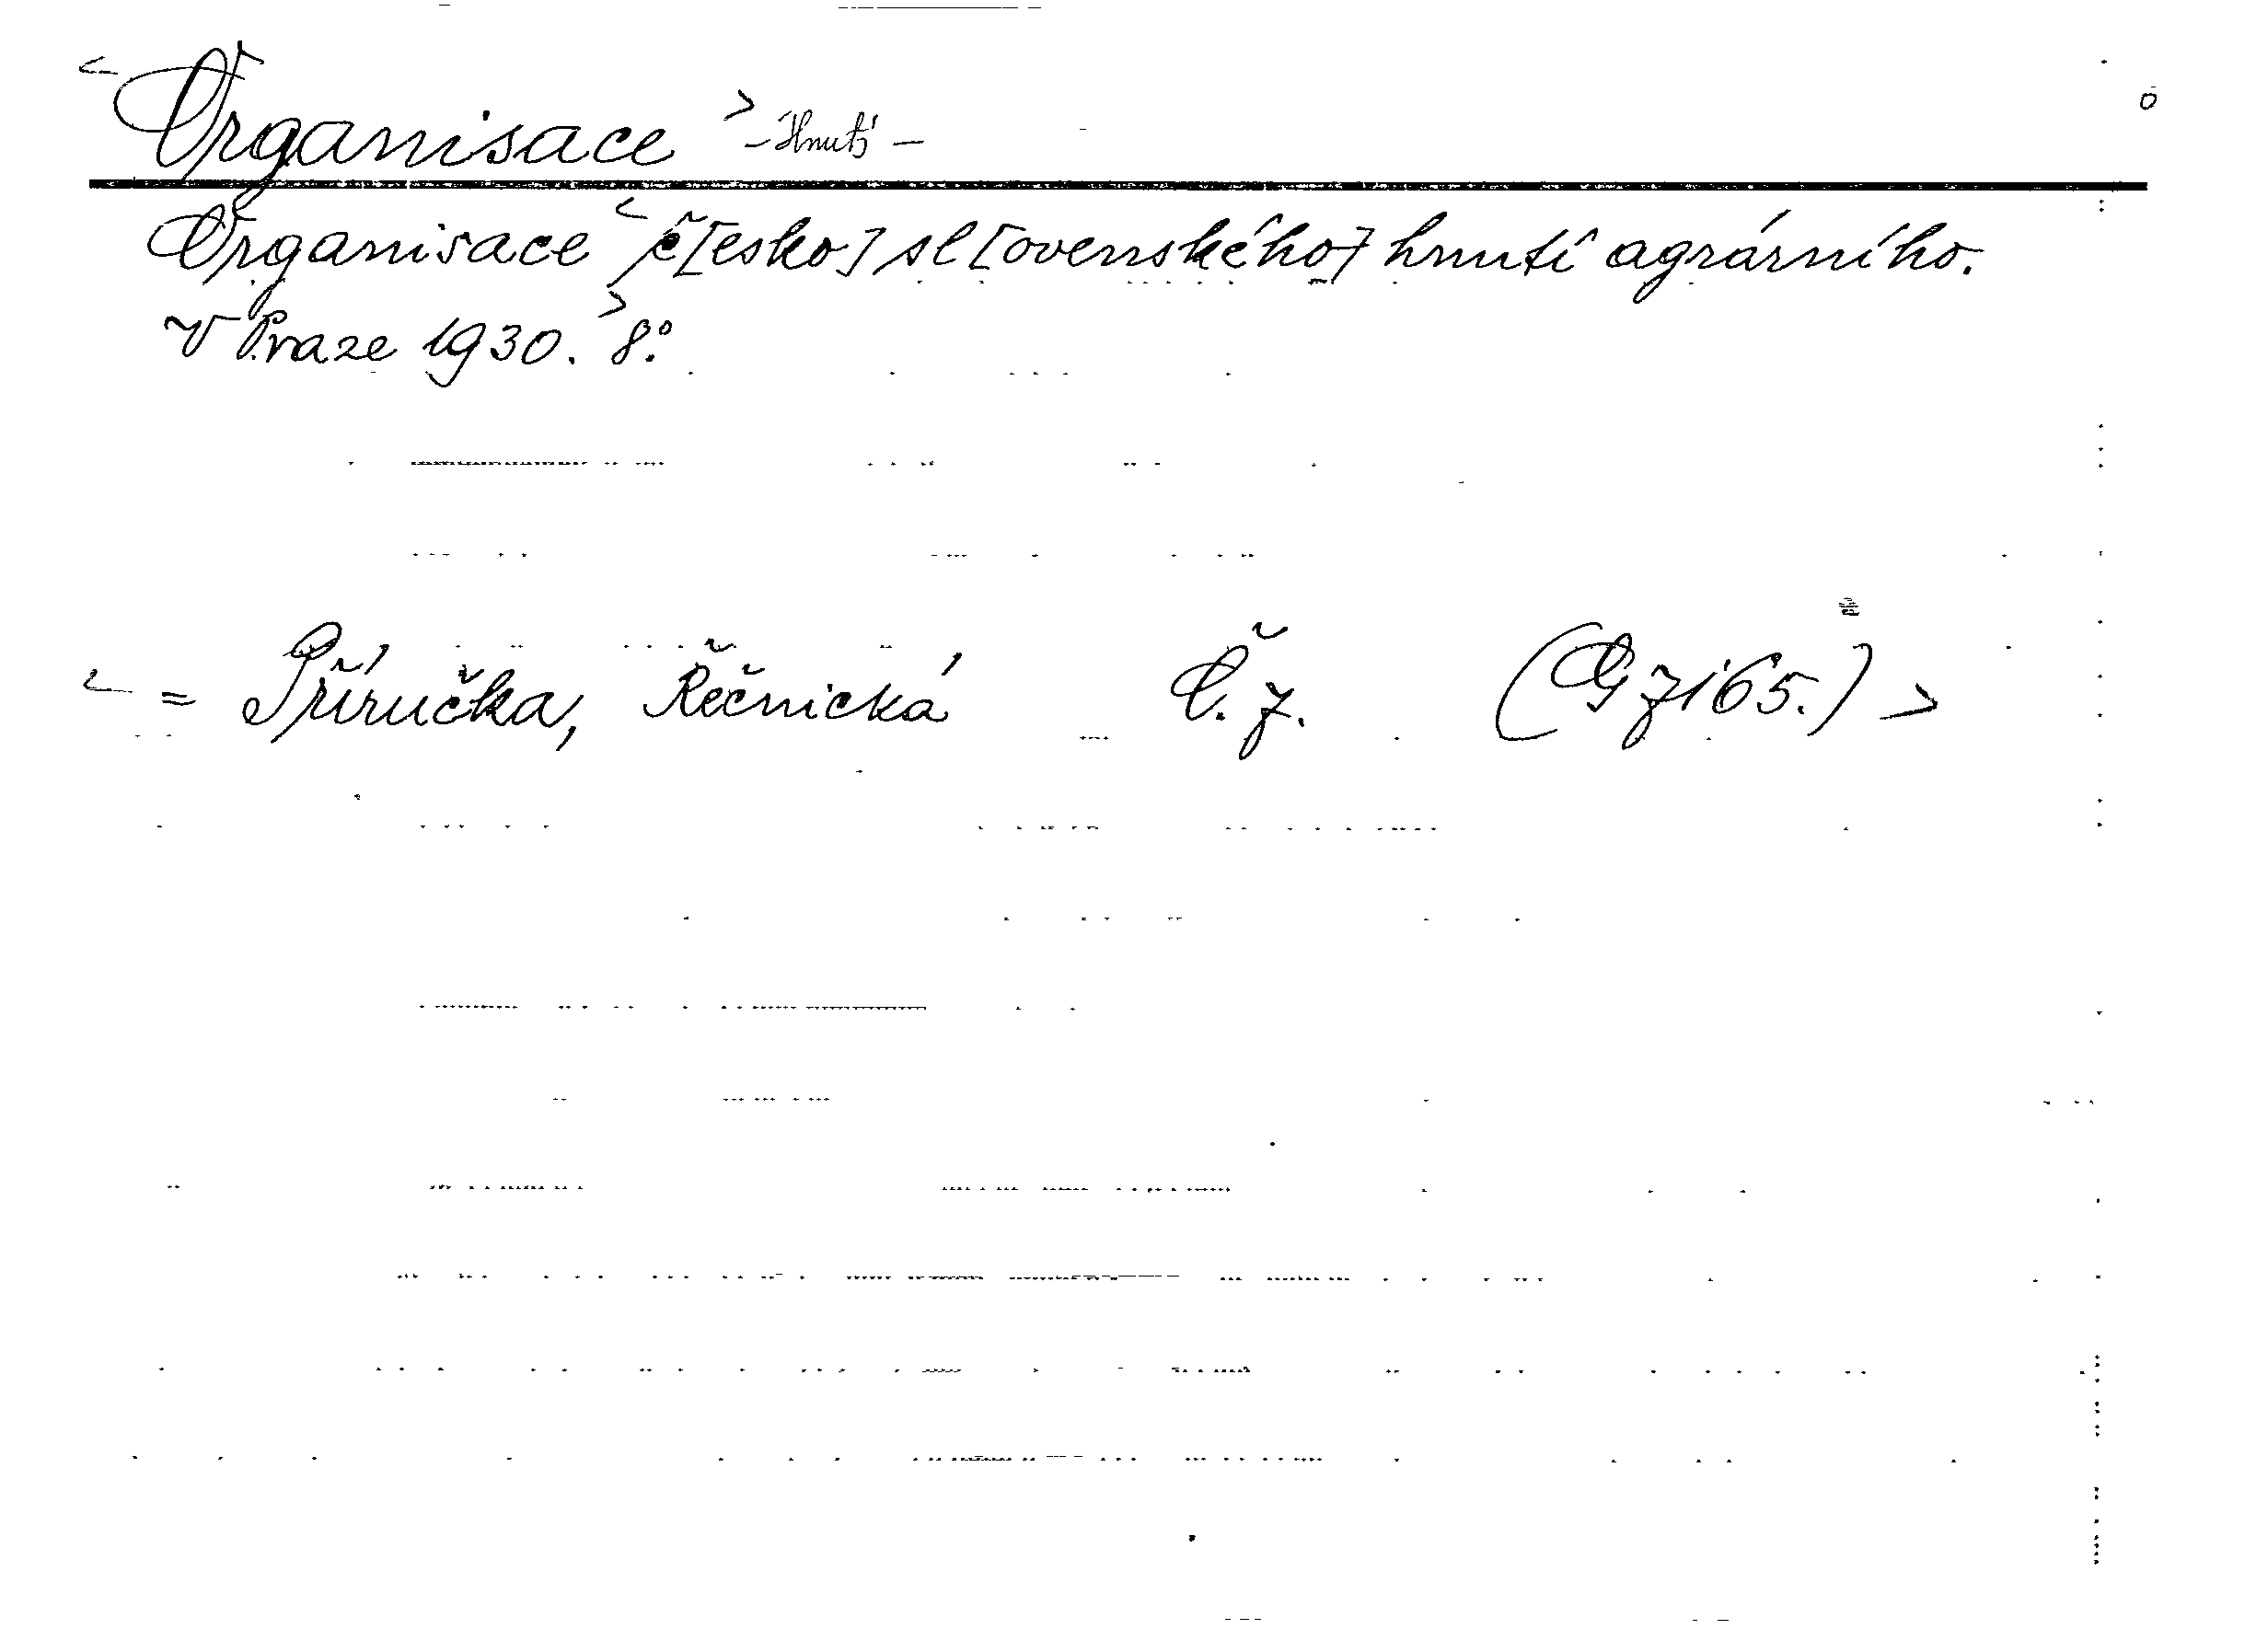 < Organisace > - Hnutí - o
Organisace < č[esko]sl[ovenského] hnutí agrárního.
V Praze 1930. > 8.°
< = Příručka, Řečnická Č. 7. (G 7165.) >